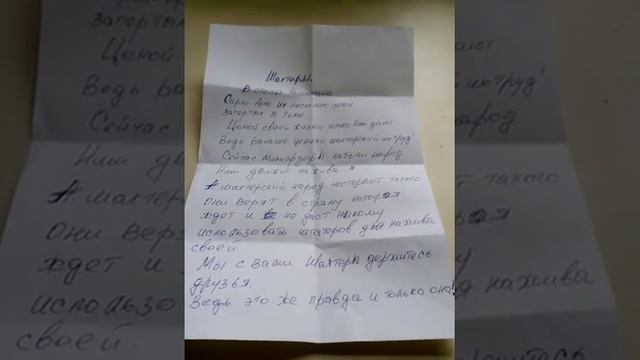 Шахтеры.
В степи
Сары-Арк их
Заперты в
Ценой своей жизни только нам дают
Ведь раньше ценили шахтерский их труд!
Сейчас Милиардеры забыли народ
Ими движит нажива
А шахтерский народ нестерпит такого
Они верят в страну которая
ждет и не даст никому
использовать шахторов для нажива
своей.
Мы с вами Шахторы держитесь
друзья.
Ведь это же правда и только она!